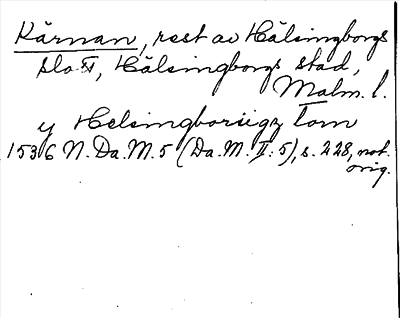 Kärnan, rest av Hälsingborgs
slott, Hälsingborgs stad,
Malm. l.
y Helsingboriigz Torn
1536 N. Da. M. 5 (Da. M. II: 5), s. 228, not.
orig.